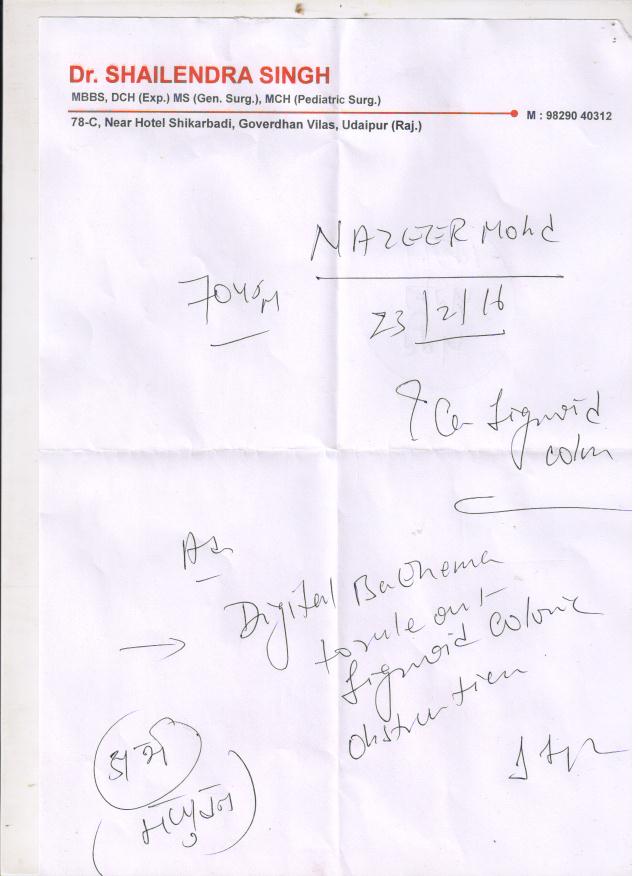 Dr. SHAILENDRA SINGH
MBBS, DCH (Exp.) MS (Gen. Surg.), MCH (Pediatric Surg.)
M : 98290 40312
78-C, Near Hotel Shikarbadi, Goverdhan Vilas, Udaipur (Raj.)
NAZEER Mohd
70 yrs M
23/2/16
? Ca Sigmoid
colon
Digital Ba Enema
to rule out
Sigmoid colonic
obstruction